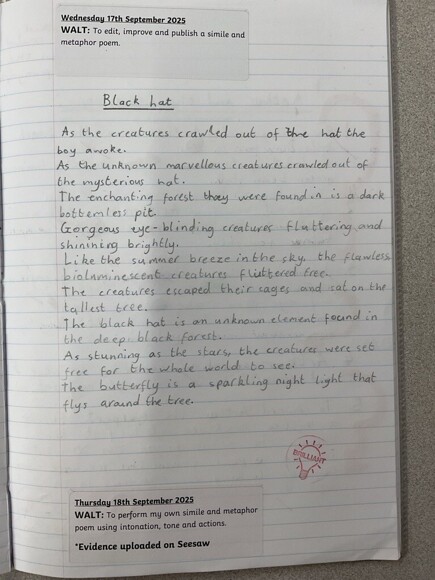 Wednesday 17th September 2025
WALT: To edit, improve and publish a simile and
metaphor poem.
Black hat
As the creatures crawled out of the hat the
boy awoke.
As the unknown marvellous creatures crawled out of
the mysterious hat.
The enchanting forest they were found in is a dark
bottemless pit.
Gorgeous eye-blinding creatures fluttering and
shinining brightly.
Like the summer breeze in the sky, the flawless
bioluminescent creatures fluttered free.
The creatures escaped their cages and sat on the
tallest tree.
The black hat is an unknown element found in
the deep black forest.
As stunning as the stars, the creatures were set
free for the whole world to see.
The butterfly is a sparkling night light that
flys around the tree.
BRILLIANT
Thursday 18th September 2025
WALT: To perform my own simile and metaphor
poem using intonation, tone and actions.
*Evidence uploaded on Seesaw